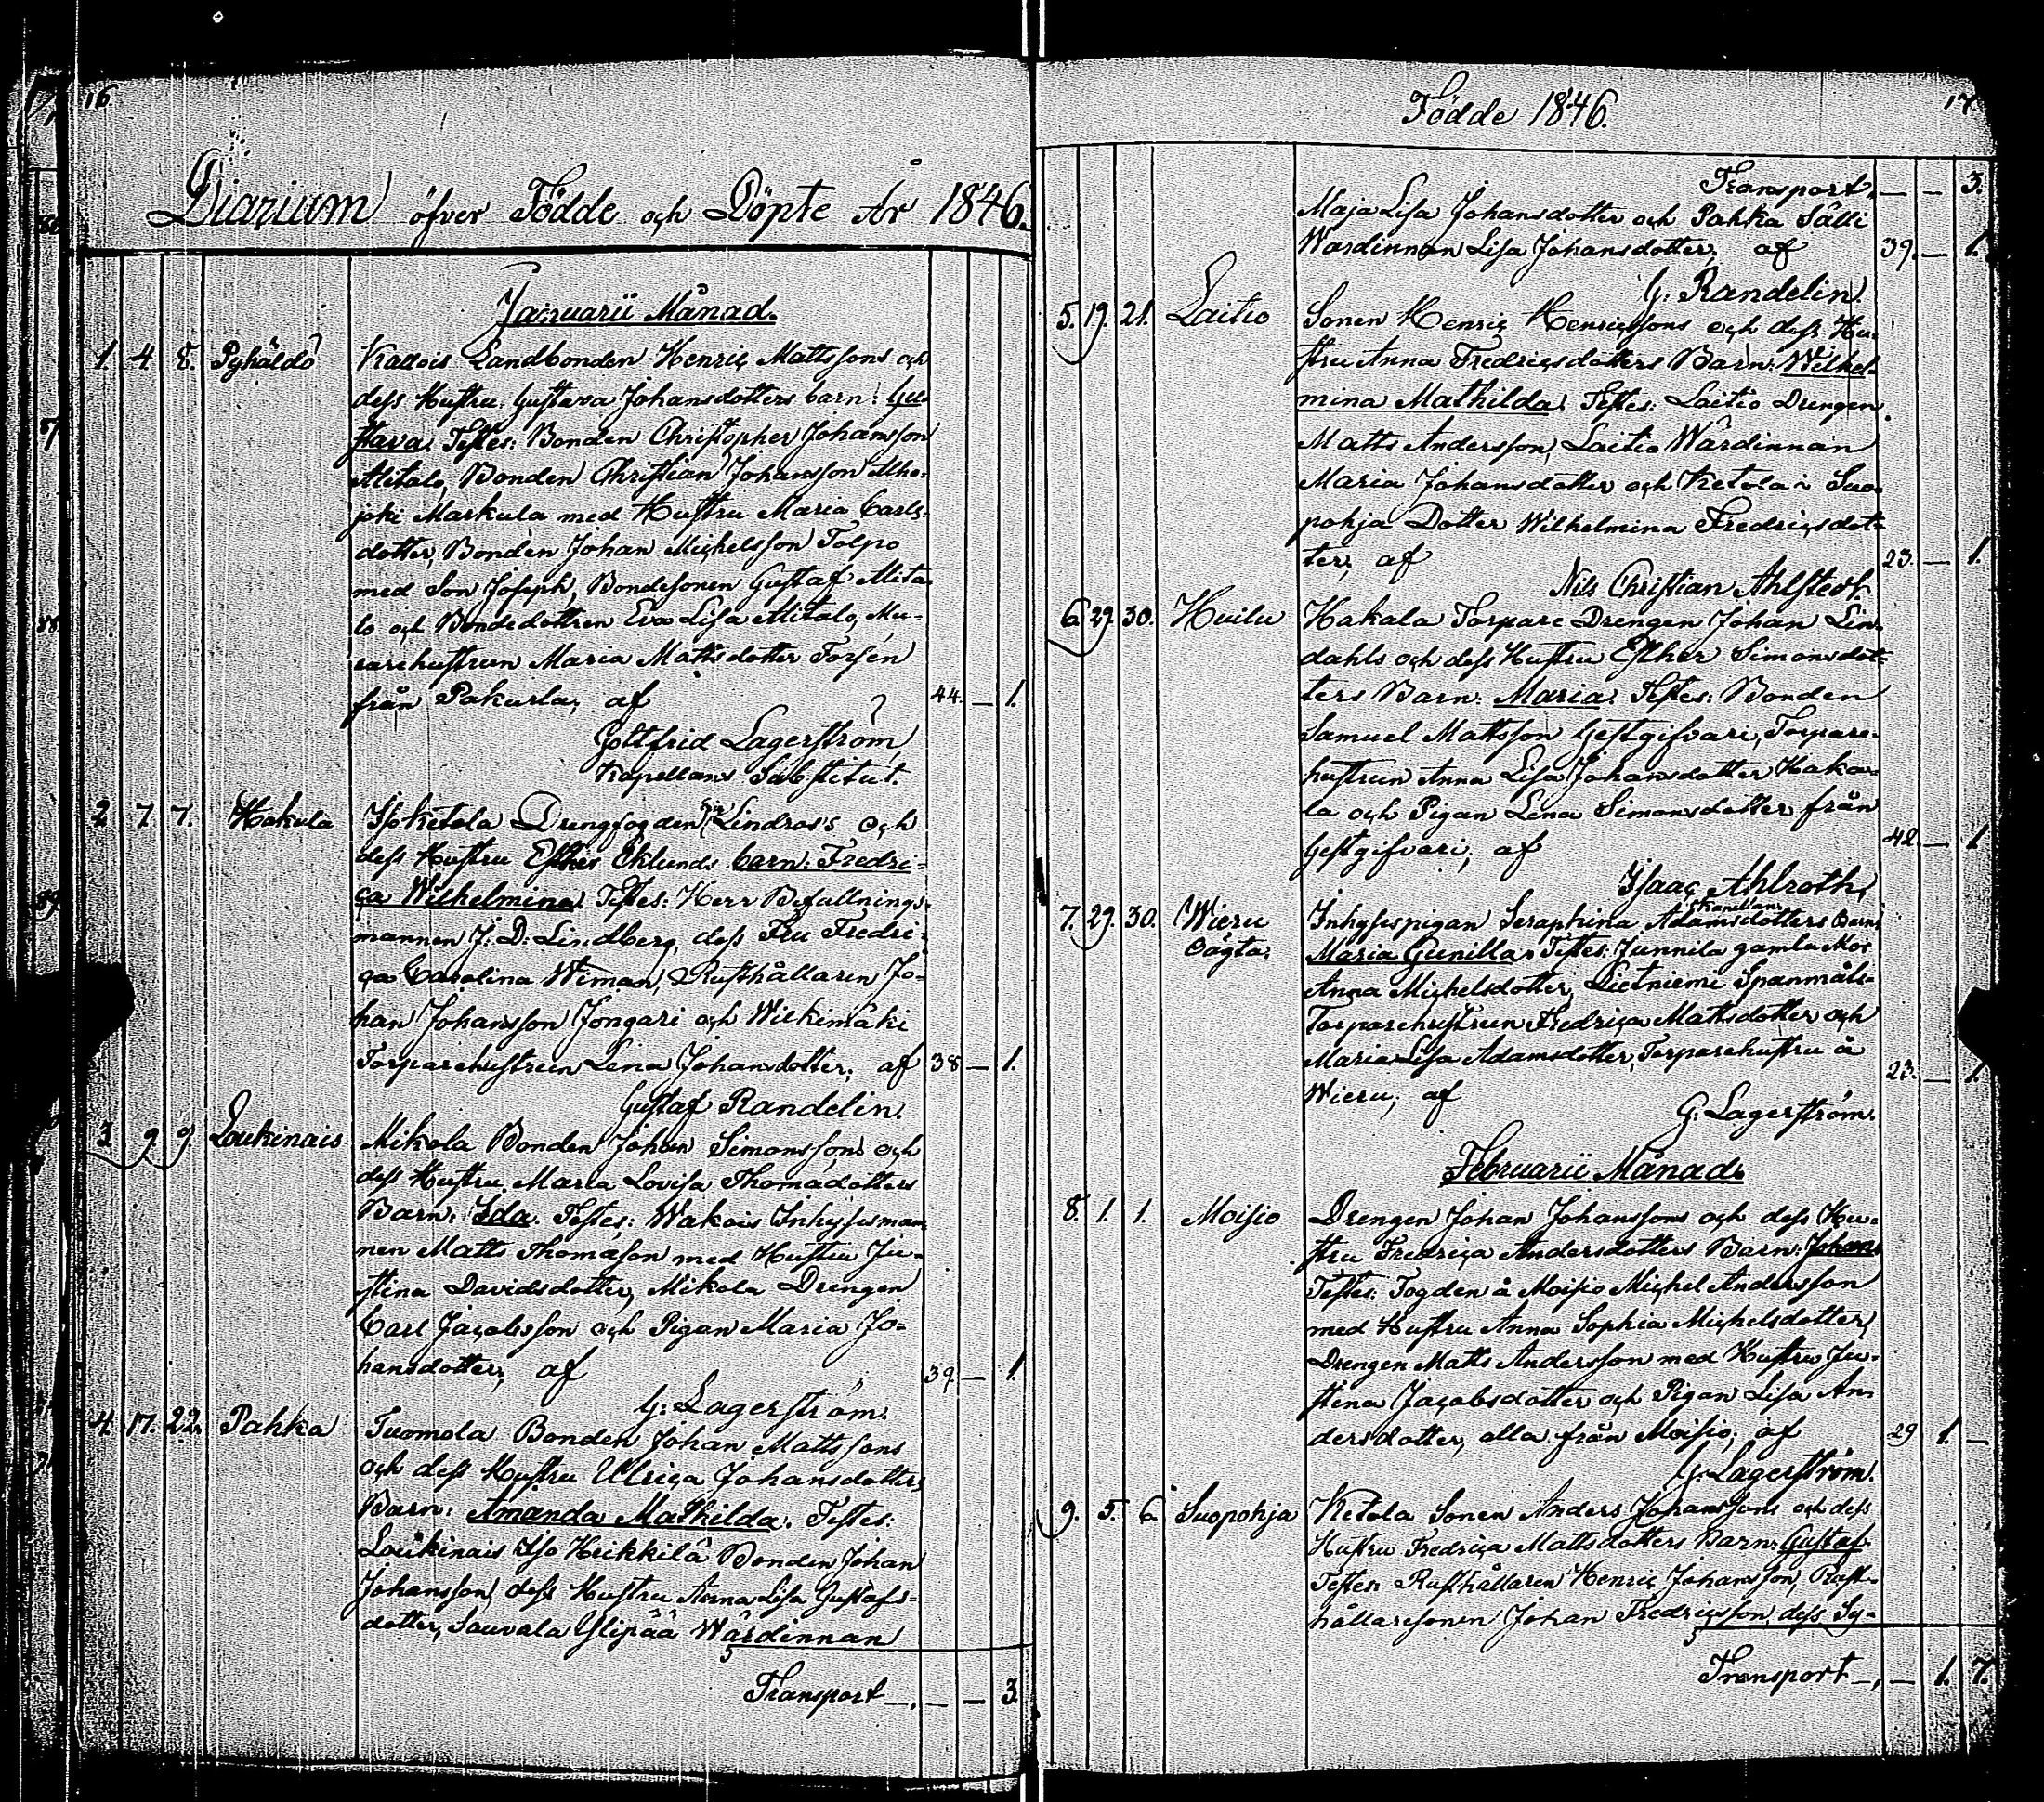 16
Diarium öfver Födde och Döpte År 1846.
Januarii Månad.
1. 4. 8. Pyhäldö Kallois Landbonden Henric Mattssons och
dess Hustru Gustava Johansdotters barn: Gu-
stava. Testes: Bonden Christopher Johansson
Alitalo, Bonden Christian Johansson Alho-
joki Markula med Hustru Maria Carls-
dotter, Bonden Johan Michelsson Tolpo
med Son Joseph, Bondesonen Gustaf Alita-
lo och Bondedottren Eva Lisa Alitalo, Mu-
rarehustrun Maria Mattsdotter Forsén
från Pakurla, af 44. — 1.
Gottfrid Lagerström
Kapellans Substitut.
2. 7. 7. Hakula Isoketola Drengfogden Lindros's och
dess Hustru Esther Eklunds barn: Fredri-
ca Wilhelmina. Testes: Herr Befallnings-
mannen J: D: Lindberg, dess Fru Fredri-
ca Carolina Wiman, Rusthållaren Jo-
han Johansson Jongari och Wilkimäki
Torparehustrun Lena Johansdotter, af 38 — 1.
Gustaf Randelin.
3. 9. 9. Loukinais Mikola Bonden Johan Simonssons och
dess Hustru Maria Lovisa Thomædotters
Barn: Ida. Testes: Wakois Inhysesman-
nen Matts Thomæson med Hustru Ju-
stina Davidsdotter, Mikola Drengen
Carl Jacobsson och Pigan Maria Jo-
hansdotter, af 39. — 1.
G: Lagerström.
4. 17. 22. Pahka Tuomola Bonden Johan Mattssons
och dess Hustru Ulrica Johansdotters
Barn: Amanda Mathilda. Testes:
Loukinais Iso Heikkilä Bonden Johan
Johansson, dess Hustru Anna Lisa Gustafs-
dotter, Sauvala Ylipää Wärdinnan
Transport —, — — 3.
Födde 1846.
17.
Transport, — — 3.
Maja Lisa Johansdotter och Pahka Sälli
Wärdinnan Lisa Johansdotter, af 39. — 1.
G: Randelin.
5. 19. 21. Laitio Sonen Henric Henricssons och dess Hu-
stru Anna Fredricsdotters Barn: Wilhel-
mina Mathilda. Testes: Laitio Drengen
Matts Andersson, Laitio Wärdinnan
Maria Johansdotter och Ketola i Suo-
pohja Dotter Wilhelmina Fredricsdot-
ter, af 23. — 1.
Nils Christian Ahlstedt.
6. 29. 30. Huilu Hakala Torpare Drengen Johan Lin-
dahls och dess Hustru Esther Simonsdot-
ters Barn: Maria. Testes: Bonden
Samuel Mattsson Gestgifvari, Torpare-
hustrun Anna Lisa Johansdotter Haka-
la och Pigan Lena Simonsdotter från
Gestgifvari, af 42. — 1
Isaac Ahlroth,
7. 29. 30. Wieru Inhysespigan Seraphina Adamsdotters Barn:
Oägta. Maria Gunilla. Testes: Junnila gamla Mor
Anna Michelsdotter, Lietniemi Spanmåls-
Torparehustrun Fredrica Mattsdotter och
Maria Lisa Adamsdotter, Torparehustru å
Wieru, af 23. — 1.
G: Lagerström.
Februarii Månad.
8. 1. 1. Moisio Drengen Johan Johanssons och dess Hu-
stru Fredrica Andersdotters Barn: Johan.
Testes: Fogden å Moisio Michel Andersson
med Hustru Anna Sophia Michelsdotter,
Drengen Matts Andersson med Hustru Ju-
stina Jacobsdotter och Pigan Lisa An-
dersdotter, alla från Moisio, af 29 1. —
G: Lagerström.
9. 5. 6. Suopohja Ketola Sonen Anders Johanssons och dess
Hustru Fredrica Mattsdotters Barn: Gustaf.
Testes: Rusthållaren Henric Johansson, Rust-
hållaresonen Johan Fredricsson, dess Sy-
Transport —, — 1. 7.